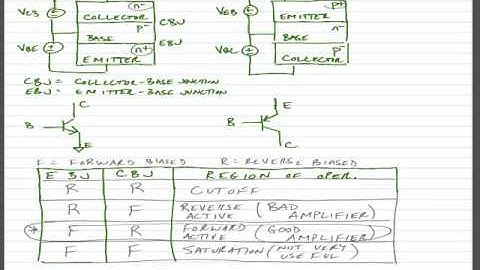 VCB n⁻ COLLECTOR CBJ
P⁻ BASE EBJ
VBE n+ EMITTER
VEB P+ EMITTER
BASE n⁻
VBC P⁻ COLLECTOR
CBJ = COLLECTOR-BASE JUNCTION
EBJ = EMITTER-BASE JUNCTION
C E
B B
E C
F = FORWARD BIASED R = REVERSE BIASED
EBJ CBJ REGION OF OPER.
R R CUTOFF
R F REVERSE ACTIVE (BAD AMPLIFIER)
* F R FORWARD ACTIVE (GOOD AMPLIFIER)
F F SATURATION (NOT VERY USEFUL)